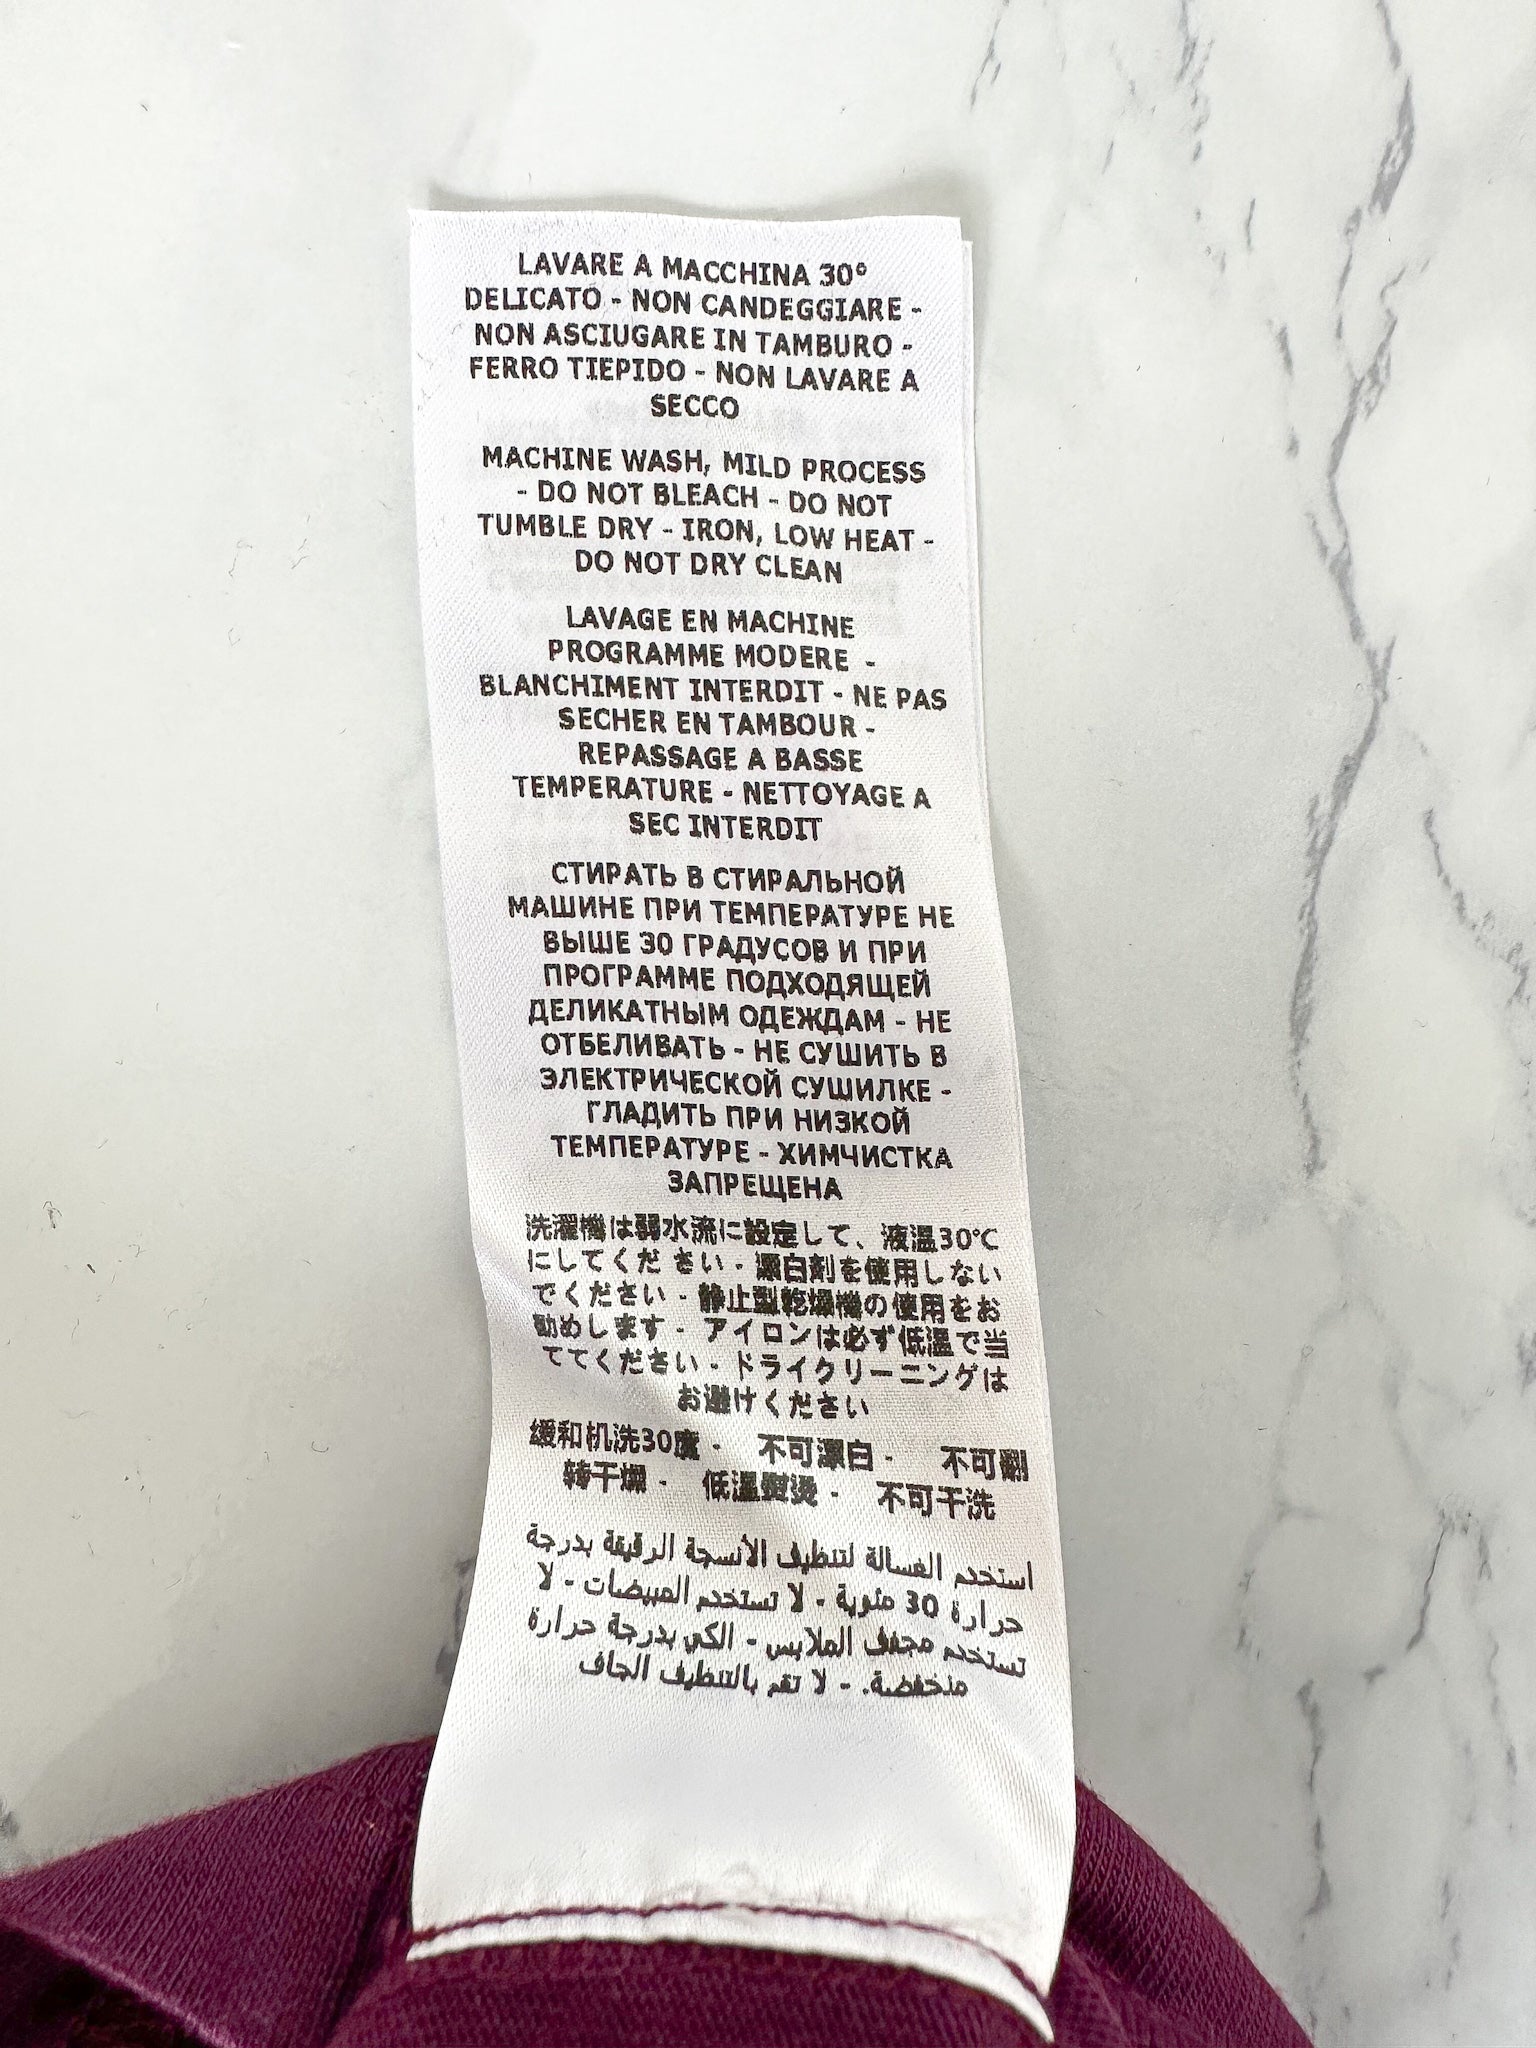 LAVARE A MACCHINA 30°
DELICATO - NON CANDEGGIARE -
NON ASCIUGARE IN TAMBURO -
FERRO TIEPIDO - NON LAVARE A
SECCO
MACHINE WASH, MILD PROCESS
- DO NOT BLEACH - DO NOT
TUMBLE DRY - IRON, LOW HEAT -
DO NOT DRY CLEAN
LAVAGE EN MACHINE
PROGRAMME MODERE -
BLANCHIMENT INTERDIT - NE PAS
SECHER EN TAMBOUR -
REPASSAGE A BASSE
TEMPERATURE - NETTOYAGE A
SEC INTERDIT
СТИРАТЬ В СТИРАЛЬНОЙ
МАШИНЕ ПРИ ТЕМПЕРАТУРЕ НЕ
ВЫШЕ 30 ГРАДУСОВ И ПРИ
ПРОГРАММЕ ПОДХОДЯЩЕЙ
ДЕЛИКАТНЫМ ОДЕЖДАМ - НЕ
ОТБЕЛИВАТЬ - НЕ СУШИТЬ В
ЭЛЕКТРИЧЕСКОЙ СУШИЛКЕ -
ГЛАДИТЬ ПРИ НИЗКОЙ
ТЕМПЕРАТУРЕ - ХИМЧИСТКА
ЗАПРЕЩЕНА
洗濯機は弱水流に設定して、液温30℃
にしてください - 漂白剤を使用しない
でください - 静止型乾燥機の使用をお
勧めします - アイロンは必ず低温で当
ててください - ドライクリーニングは
お避けください
缓和机洗30度 - 不可漂白 - 不可翻
转干燥 - 低温熨烫 - 不可干洗
استخدم الغسالة لتنظيف الأنسجة الرقيقة بدرجة
حرارة 30 مئوية - لا تستخدم المبيضات - لا
تستخدم مجفف الملابس - الكي بدرجة حرارة
منخفضة. - لا تقم بالتنظيف الجاف